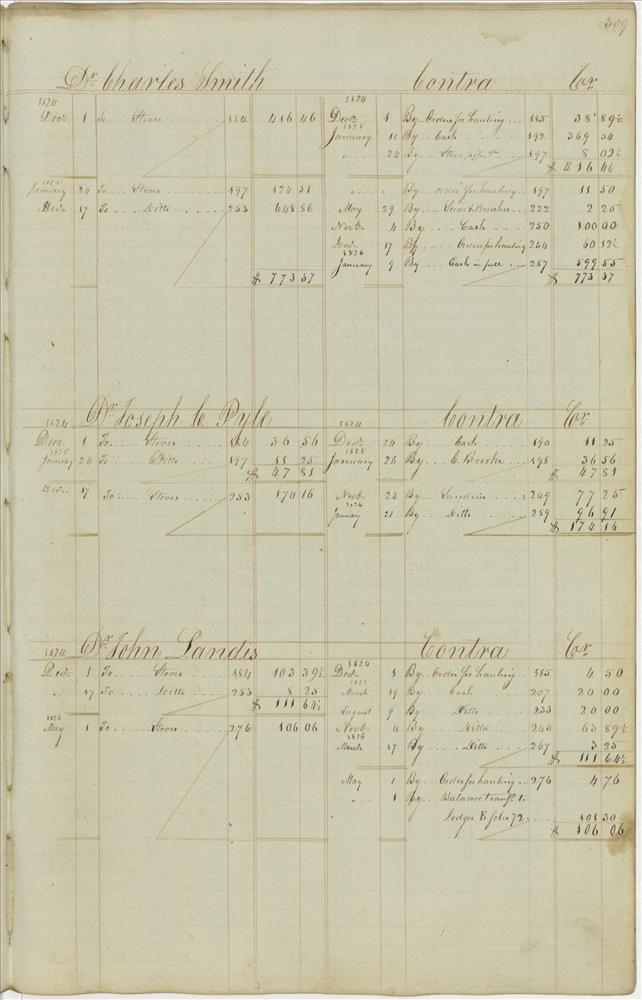 309
Dr. Charles Smith Contra Cr.
1824 1824
Decr. 1 To Stoves 184 416 46 Decr. 1 By Order for hauling 185 38 89½
1825
January 11 By Cash 192 369 54
" 24 By Stove pipe &c 197 8 02½
$ 416 46
1825
January 24 To Stoves 197 124 51 " " By order for hauling 197 11 50
Decr. 17 To Ditto 253 648 86 May 29 By 222 2 25
Novbr. 4 By Cash 250 100 00
Decr. 17 By Order for hauling 254 60 12½
1826
January 9 By Cash in full 257 599 55
$ 773 37 $ 773 37
Dr. Joseph C Pyle Contra Cr.
1824 1824
Decr. 1 To Stoves 184 36 56 Decr. 24 By Cash 190 11 25
1825 1825
January 24 To Ditto 197 11 25 January 26 By C. Brooke 198 36 56
$ 47 81 $ 47 81
Decr. 17 To Stoves 253 174 16 Novbr. 23 By Sundries 249 77 25
1826
January 21 By Ditto 259 96 91
$ 174 16
Dr. John Landis Contra Cr.
1824 1824
Decr. 1 To Stoves 184 103 39½ Decr. 1 By Order for hauling 185 4 50
1825
" 17 To Ditto 253 8 25 March 19 By Cash 207 20 00
$ 111 64½ August 9 By Ditto 233 20 00
1826
May 1 To Stoves 276 106 06 Novbr. 4 By Ditto 245 63 89½
1826
March 17 By Ditto 267 3 25
$ 111 64½
May 1 By Order for hauling 276 4 76
" 1 By Balance transfd. to
Ledger E folio 72 101 30
$ 106 06